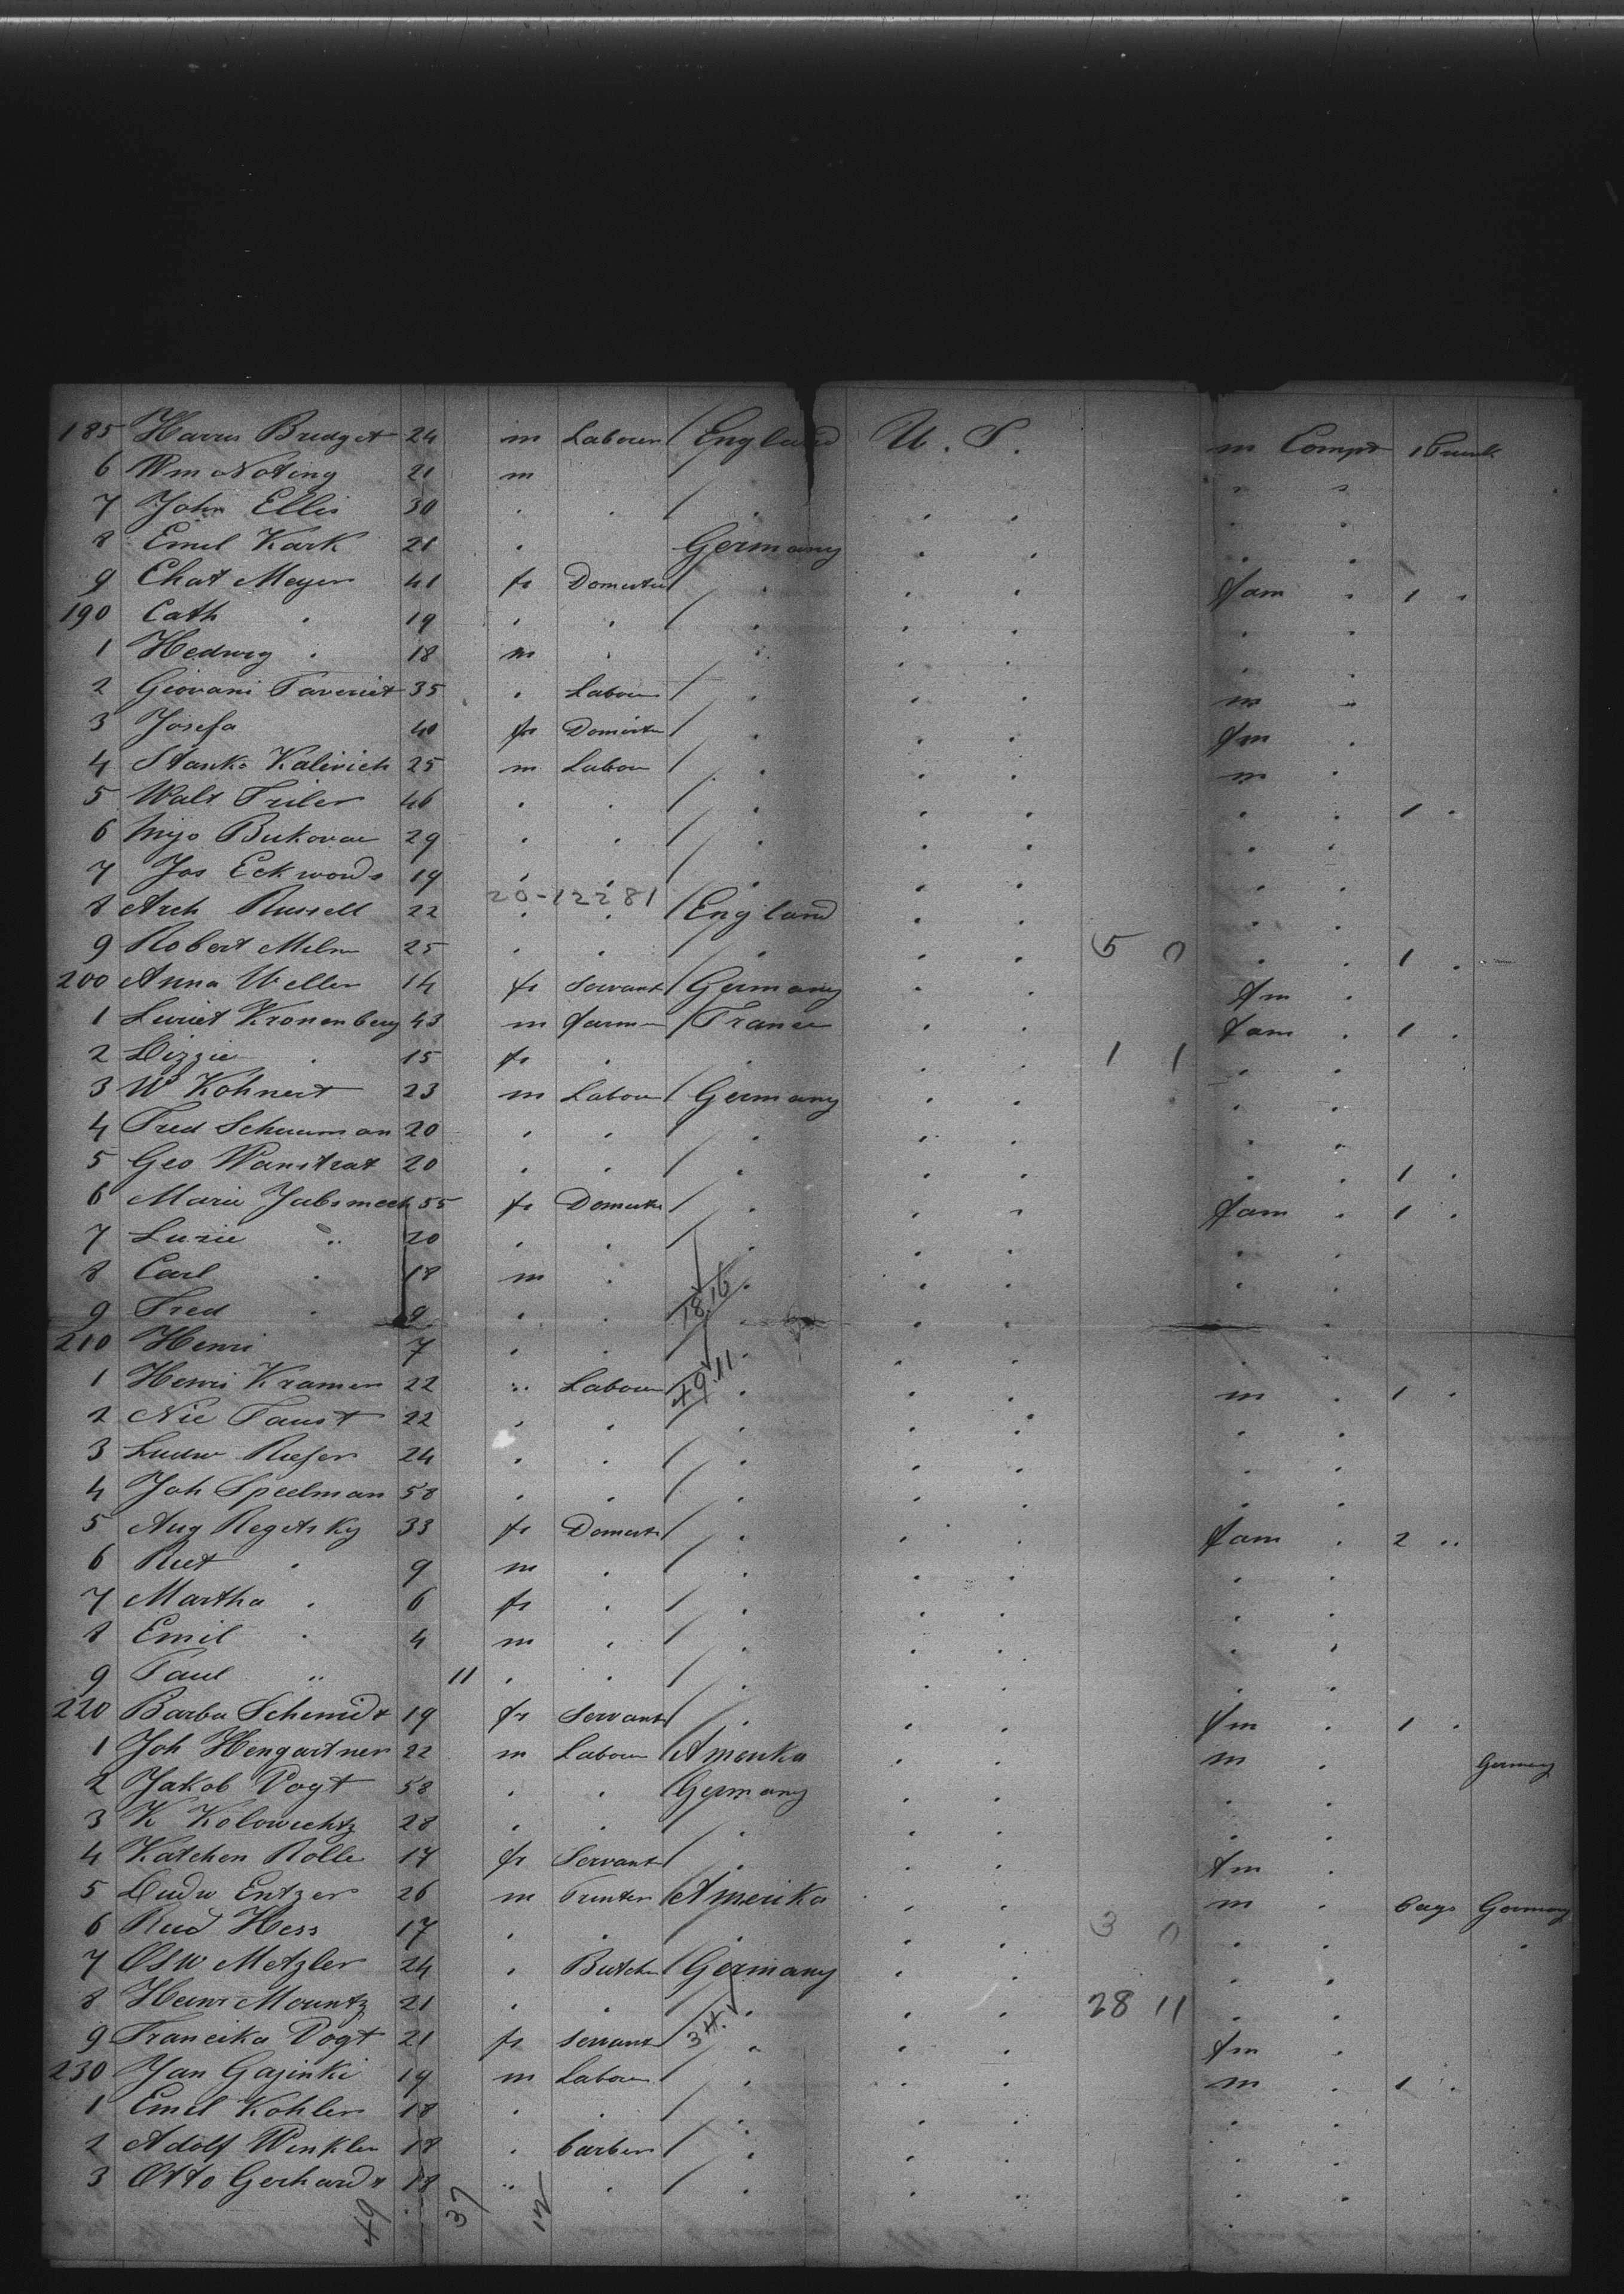 185 Harris Bridget 24 m Labourer England U. S. m Compt 1 Trunk
6 Wm Noting 21 m
7 John Ellis 30
8 Emil Kark 21 Germany
9 Chat Meyer 41 fr Domestic fam 1
190 Cath 19
1 Hedwig 18 m
2 Giovani 35 Labour m
3 Josefa 40 fr Domestic fm
4 Stanko Kalivich 25 m Labour m
5 Walt Triler 46 1
6 Mijo Bukovac 29
7 Jos Eckwords 19
20-12281
8 Arch Russell 22 England
9 Robert Miln 25 5 0 1
200 Anna Weller 14 fr Servant Germany fm
1 Kronenberg 43 m farm France fam 1
2 Lizzie 15 fr 1 1
3 W Kohnert 23 m Labour Germany
4 Fred Schuuman 20
5 Geo Wanstrat 20 1
6 Marie Jabsmech 55 fr Domestic fam 1
7 Luzie 20
8 Carl 18 m
18.16
9 Fred 9
210 Henri 7
49.11
1 Henri Kramer 22 Labour m 1
2 Nic Faust 22
3 Ludw Riefer 24
4 Joh Speelman 58
5 Aug Regetsky 33 fr Domest fam 2
6 9 m
7 Martha 6 fr
8 Emil 4 m
9 Paul 11
220 Barba Schmidt 19 fr Servant fm 1
1 Joh Hengartner 22 m Labour Amerika m Germany
2 Jakob Vogt 58 Germany
3 K Kolowichtz 28
4 Katchen Rolle 17 fr Servant fm
5 Ludw Entzer 26 m Printer Amerika m bags Germany
6 Rud Hess 17 3 0
7 Osw Metzler 24 Butcher Germany
8 Heinr Mountz 21 28 11
34.
9 Franciska Vogt 21 fr Servant fm
230 Jan Gajinki 19 m Labour m 1
1 Emil Kohler 18
2 Adolf Winkler 18 barber
3 Otto Gerhardt 18
49 37 12